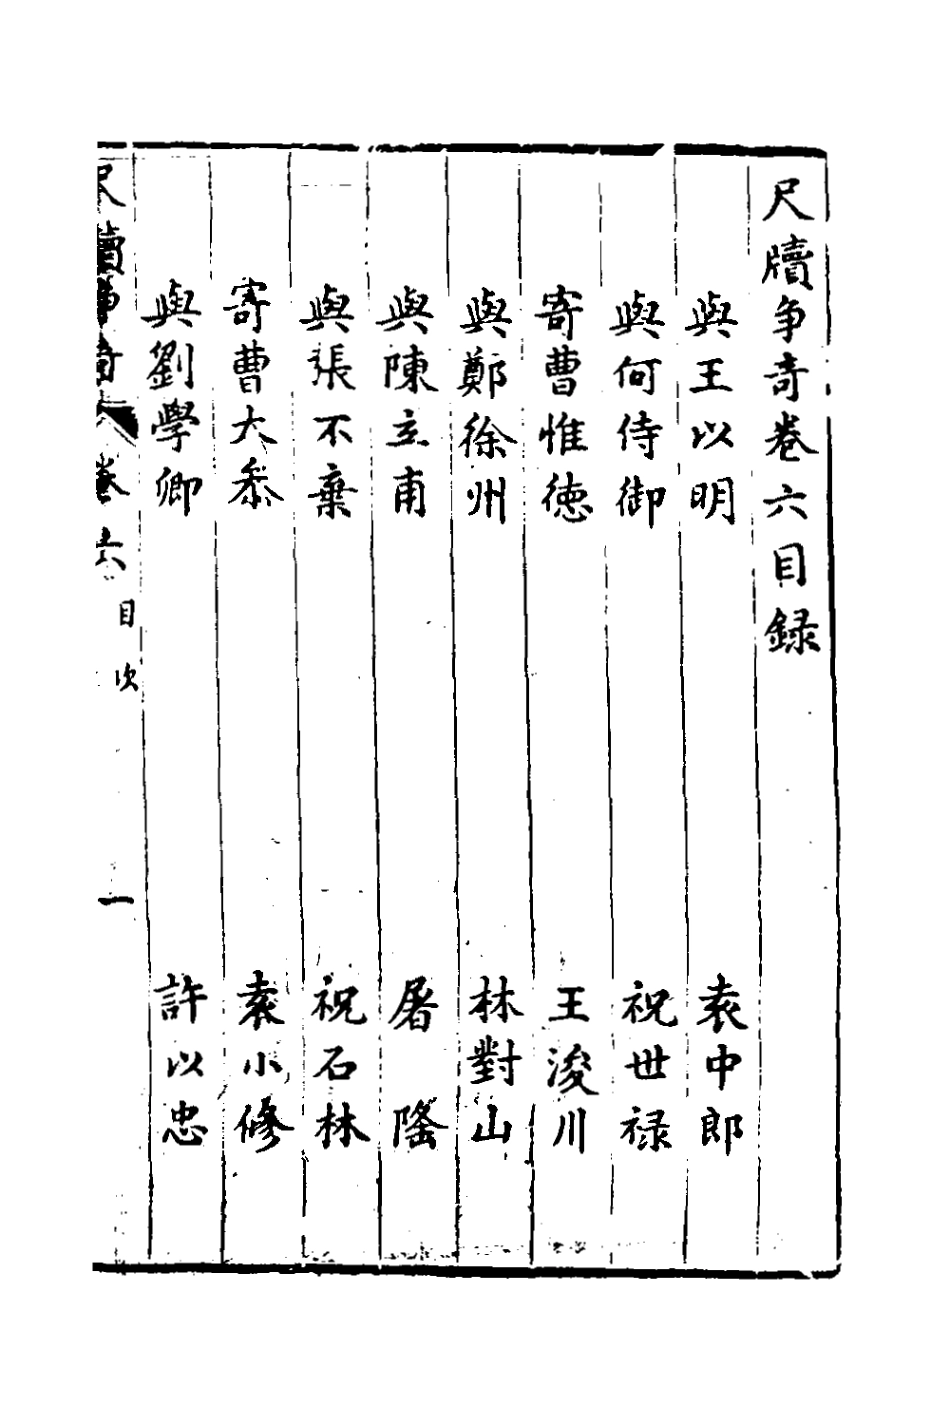 尺牘争奇卷六目録
與王以明 袁中郎
與何侍御 祝世禄
寄曹惟德 王浚川
與鄭徐州 林對山
與陳立甫 屠隆
與張不棄 祝石林
寄曹大叅 袁小修
與劉學卿 許以忠
尺牘争奇 卷六 目次 一